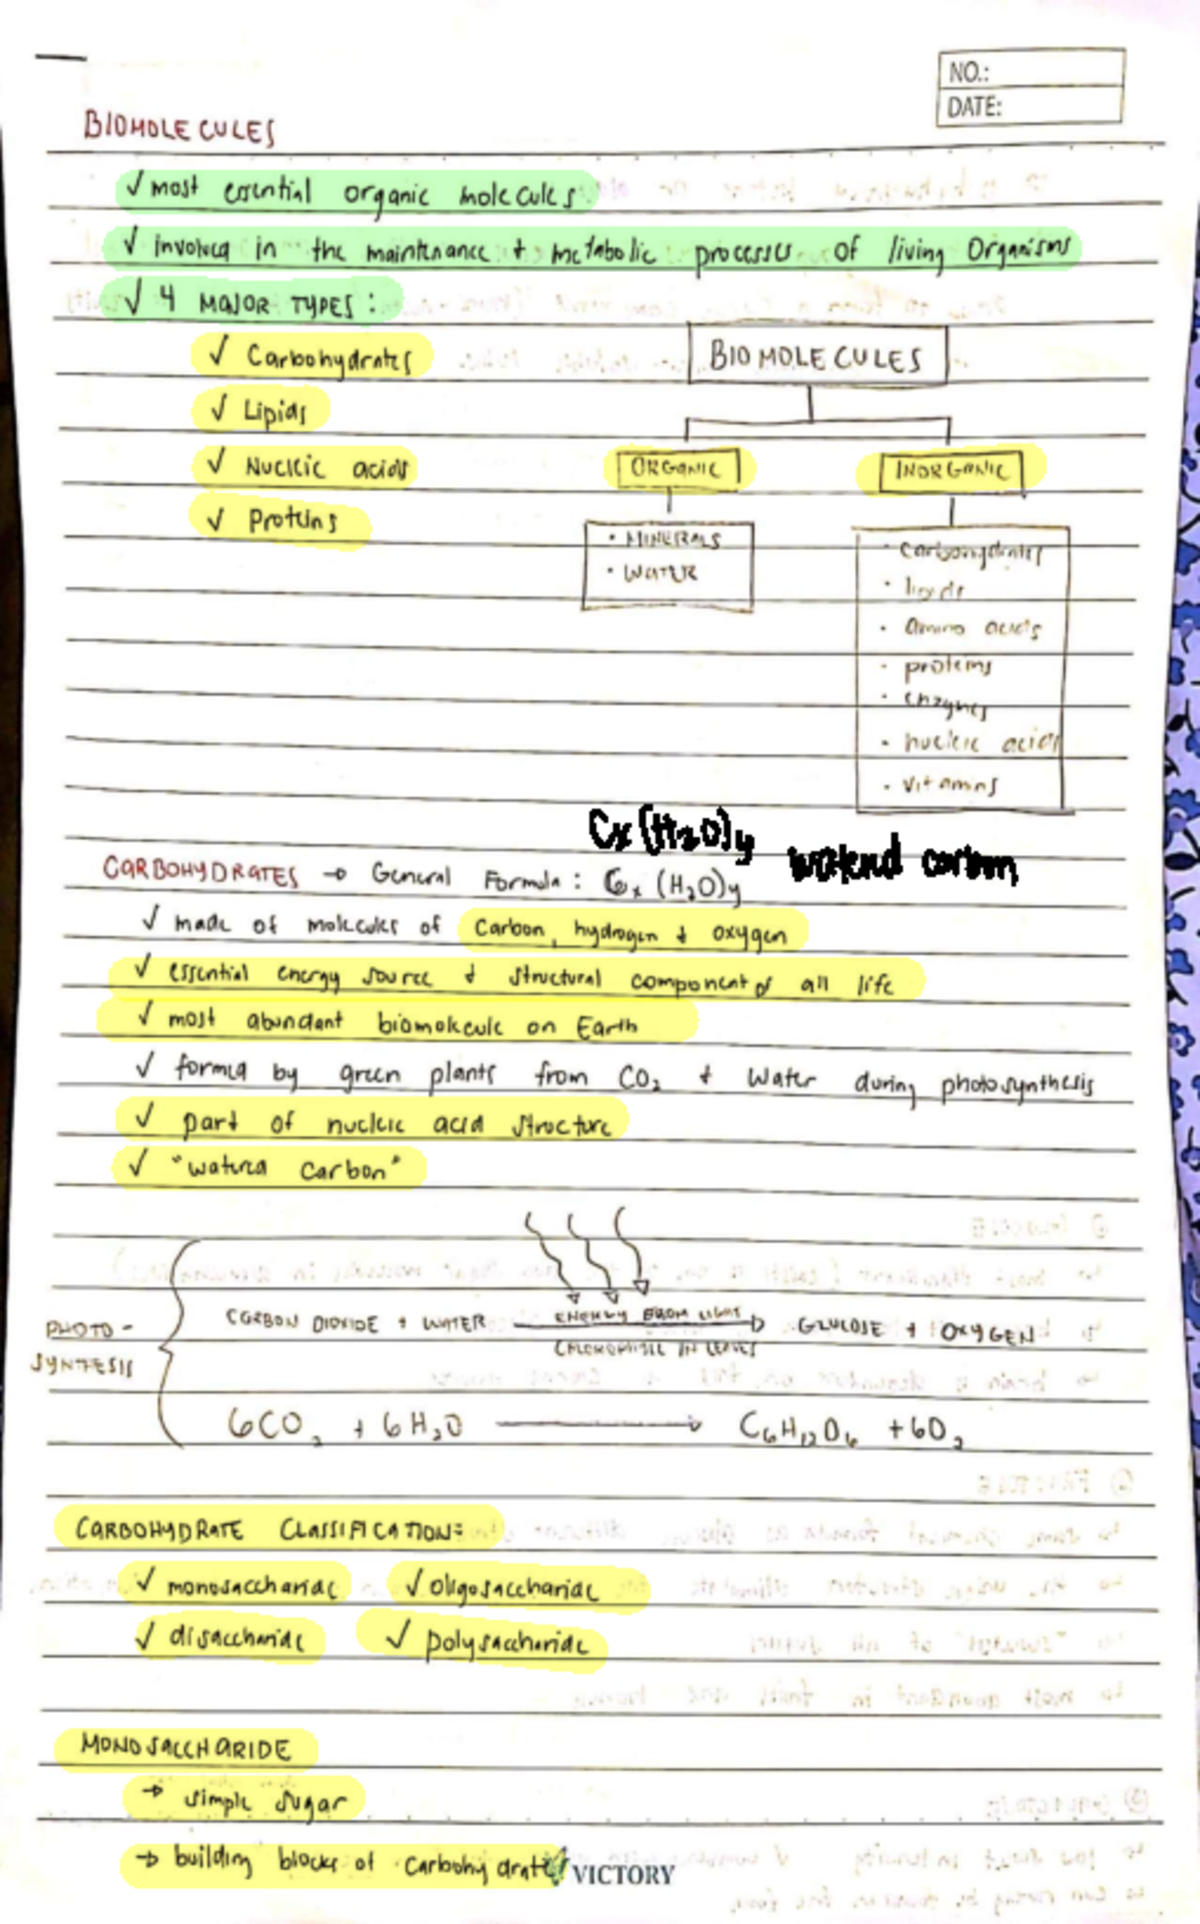 NO.:
DATE:
BIOMOLECULES
✓ most essential organic molecules
✓ involved in the maintenance + metabolic processes of living organisms
✓ 4 MAJOR TYPES:
✓ Carbohydrates
✓ Lipids
✓ Nucleic acids
✓ Proteins
BIOMOLECULES
ORGANIC
INORGANIC
• MINERALS
• WATER
• carbohydrates
• lipids
• amino acids
• proteins
• enzymes
• nucleic acids
• vitamins
Cx(H2O)y
watered carbon
CARBOHYDRATES → General Formula: Cx (H₂O)y
✓ made of molecules of carbon, hydrogen + oxygen
✓ essential energy source + structural component of all life
✓ most abundant biomolecule on Earth
✓ formed by green plants from CO₂ + water during photosynthesis
✓ part of nucleic acid structure
✓ "watered carbon"
PHOTO-
SYNTESIS
CARBON DIOXIDE + WATER ENERGY FROM LIGHT → GLUCOSE + OXYGEN
CHLOROPHYLL IN LEAVES
6CO₂ + 6H₂O → C₆H₁₂O₆ + 6O₂
CARBOHYDRATE CLASSIFICATION:
✓ monosaccharide ✓ oligosaccharide
✓ disaccharide ✓ polysaccharide
MONOSACCHARIDE
→ simple sugar
→ building blocks of carbohydrates
VICTORY